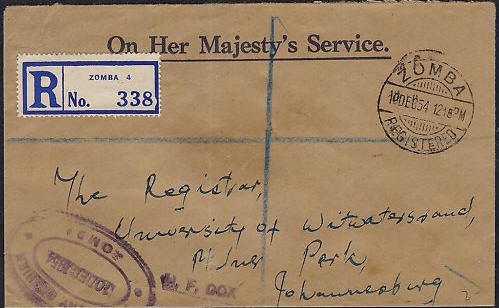 On Her Majesty's Service.
ZOMBA 4
R No. 338
ZOMBA
10 DE 54 12 18 PM
REGISTERED
The Registrar,
University of Witwatersrand,
Park,
F. COX
Johannesburg
ZOMB